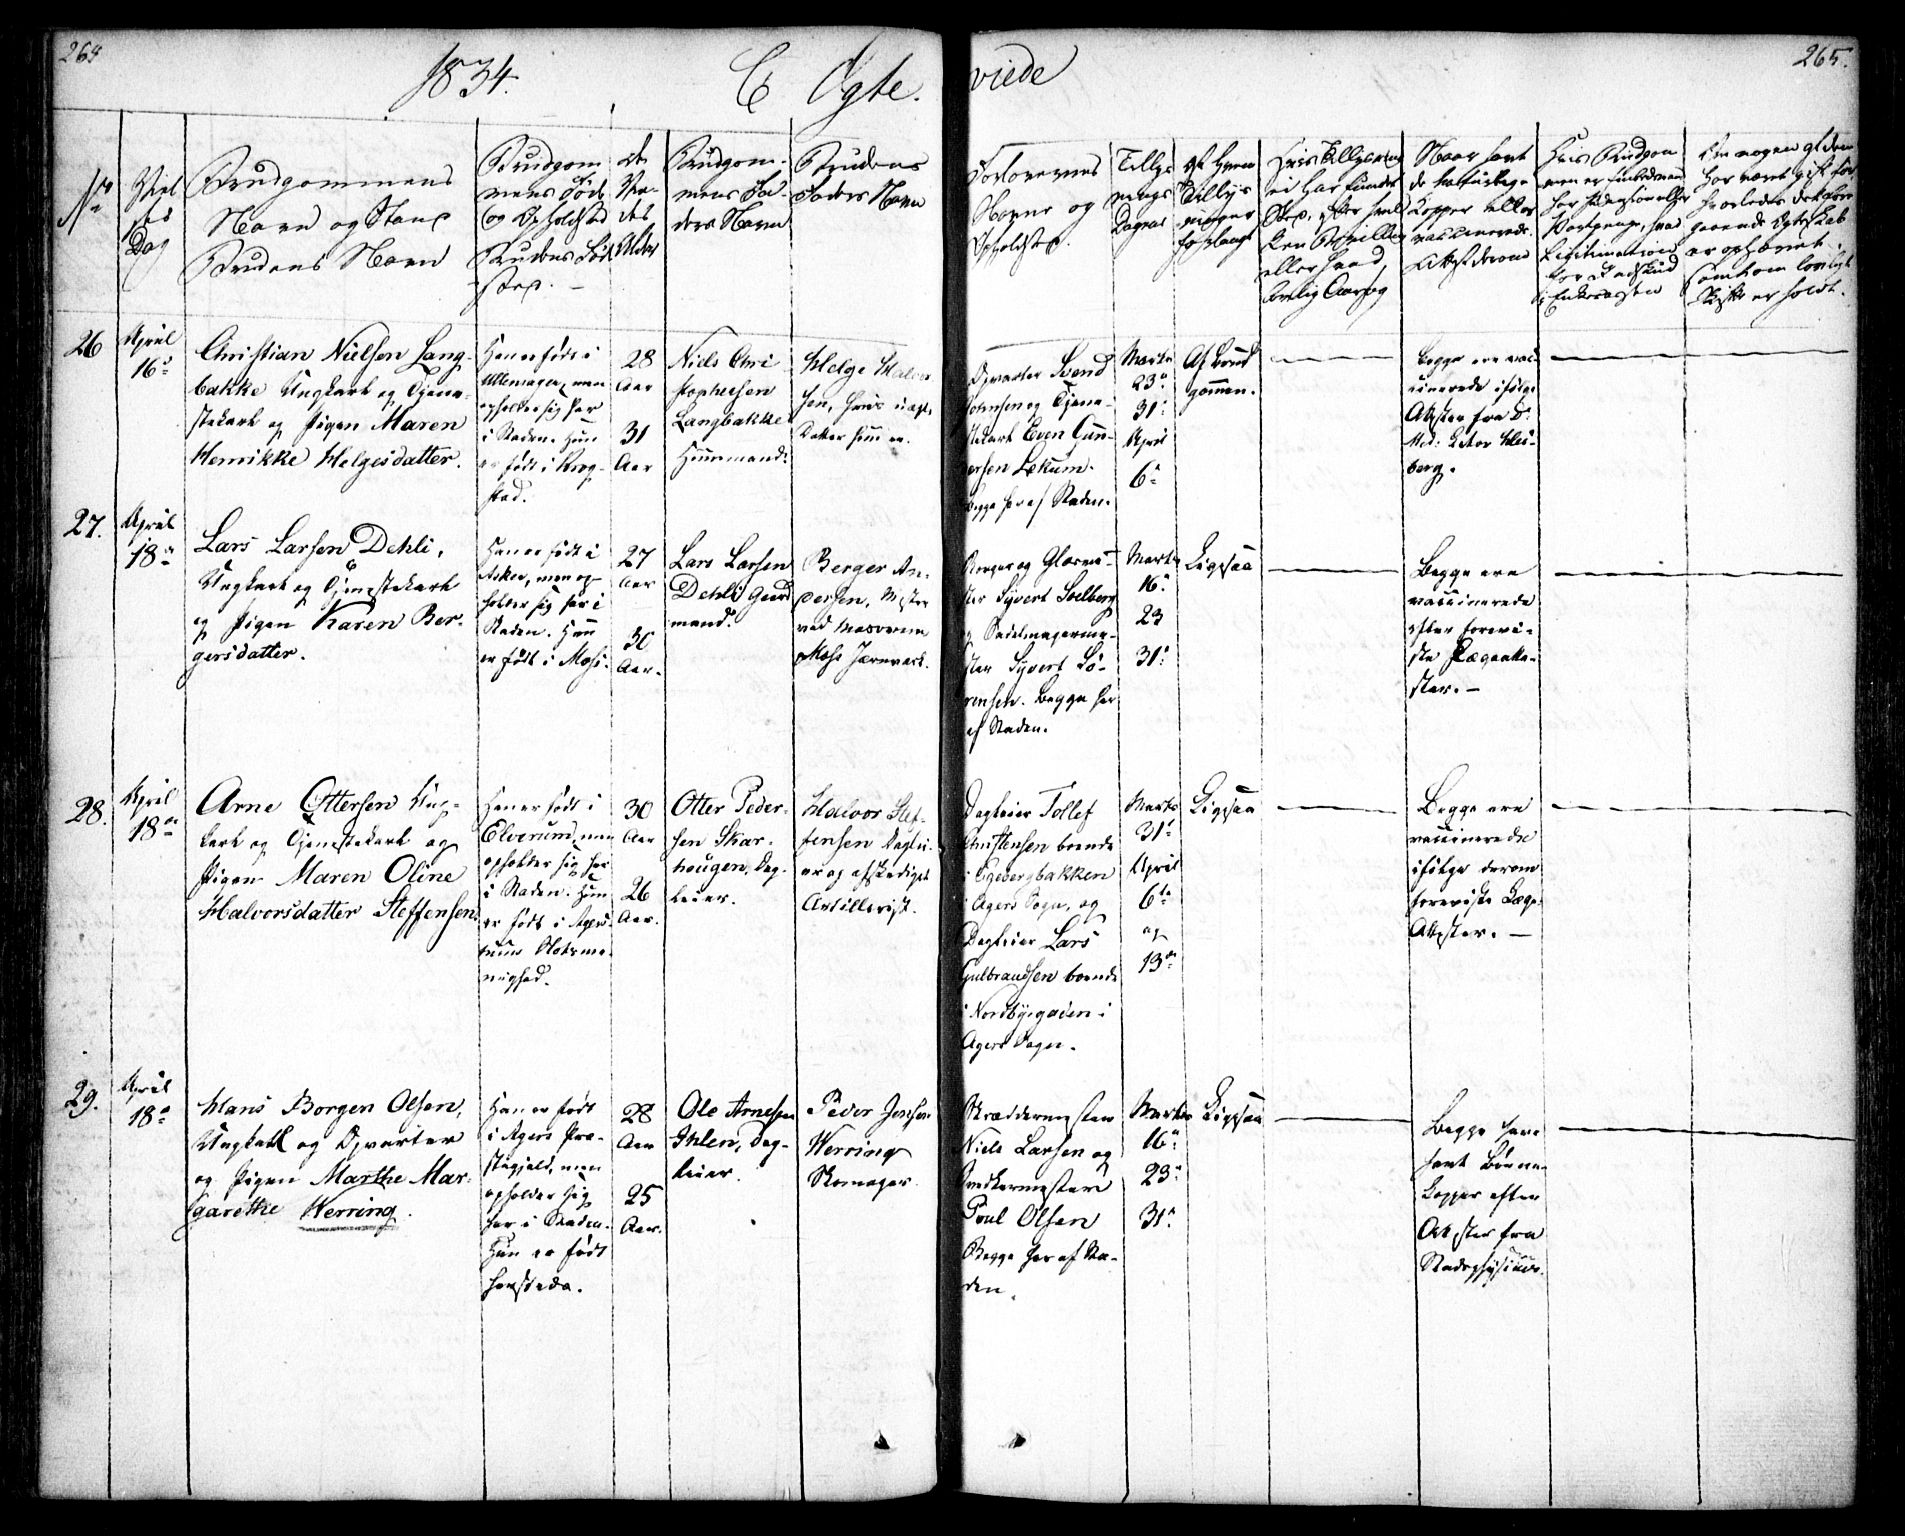 264
1834.
C Ægte.
viede
265.
No
Viel
ses
Dag
Brudgommens
Navn og Stand
Brudens Navn
Brudgom
mens Føde
og Opholdsted
Brudens Føde
sted. —
De
Vie-
des
Alder
Brudgom-
mens Fa-
ders Navn
Brudens
Faders Navn
Forlovernes
Navne og
Opholdsted.
Tillys
nings
Dagene
Af Hvem
Tillys
ningen
forlangt
Naar havt
de naturlige
Kopper eller
vaccinerede.
Attest derom
26
April
16de
Christian Nielsen Lang-
bakke Ungkarl og Tjene-
stekarl og Pigen Maren
Henrikke Helgesdatter.
Han er født i
Ullensager, men
opholder sig her
i Staden. Hun
er født i Krog-
stad.
28
Aar
31
Aar
Niels Chri
stophersen
Langbakke
Huusmand.
Helge Halvor
sen, hvis uægte
Datter hun er.
Opvarter Svend
Johnsen og Tjene-
stekarl Even Gun-
dersen Lekum.
Begge her af Staden.
Marts
23de
31te
April
6te
Af Brud
gommen.
Begge ere vac
cinerede ifølge
Attester fra Dr.
Med: Lector Hei-
berg.
27.
April
18de
Lars Larsen Dehli,
Ungkarl og Tjenestekarl
og Pigen Karen Ber-
gersdatter.
Han er født i
Asker, men op-
holder sig her i
Staden. Hun
er født i Moss.
27
Aar
30
Aar.
Lars Larsen
Dehli Gaard
mand.
Berger An-
dersen, Mester
ved Masovnene
Moss Jernverk.
Borger og Glarme-
ster Syvert Solberg
og Sadelmagerme-
ster Syvert Sø-
rensen. Begge her
af Staden.
Marts
16de
23
31te
Ligesaa
Begge ere
vaccinerede
efter forevi-
ste Lægeatte-
ster. —
28.
April
18de
Arne Ottersen Ung-
karl og Tjenestekarl og
Pigen Maren Oline
Halvorsdatter Steffensen
Han er født i
Elverum, men
opholder sig her
i Staden. Hun
er født i Agers-
huus Slotsme-
nighed.
30
Aar
26
Aar.
Otter Peder-
sen Skar-
hougen, Dag-
leier.
Halvor Stef-
fensen Daglei-
er og afskediget
Artillerist.
Dagleier Tollef
Christensen boende
i Egebergbakken
i Agers Sogn, og
Dagleier Lars
Gulbrandsen boende
i Nordbygaden i
Agers Sogn.
Marts
31te
April
6te
og
13de
Ligesaa
Begge ere
vaccinerede
ifølge derom
foreviste Læge-
Attester. —
29.
April
18de
Hans Borgen Olsen,
Ungkarl og Opvarter
og Pigen Marthe Mar-
garethe Werring.
Han er født
i Agers Præ-
stegjeld, men
opholder sig
her i Staden.
Hun er født
hersteds.
28
Aar
25
Aar.
Ole Arnesen
Ihlen, Dag-
leier.
Peder Jensen
Werring
Skomager.
Skræddermester
Niels Larsen og
Snedkermester
Poul Olsen
Begge her af Sta-
den.
Marts
16de
23de
31te
Ligesaa
Begge have
havt Børne-
kopper efter
Attester fra
Stadsphysicus.